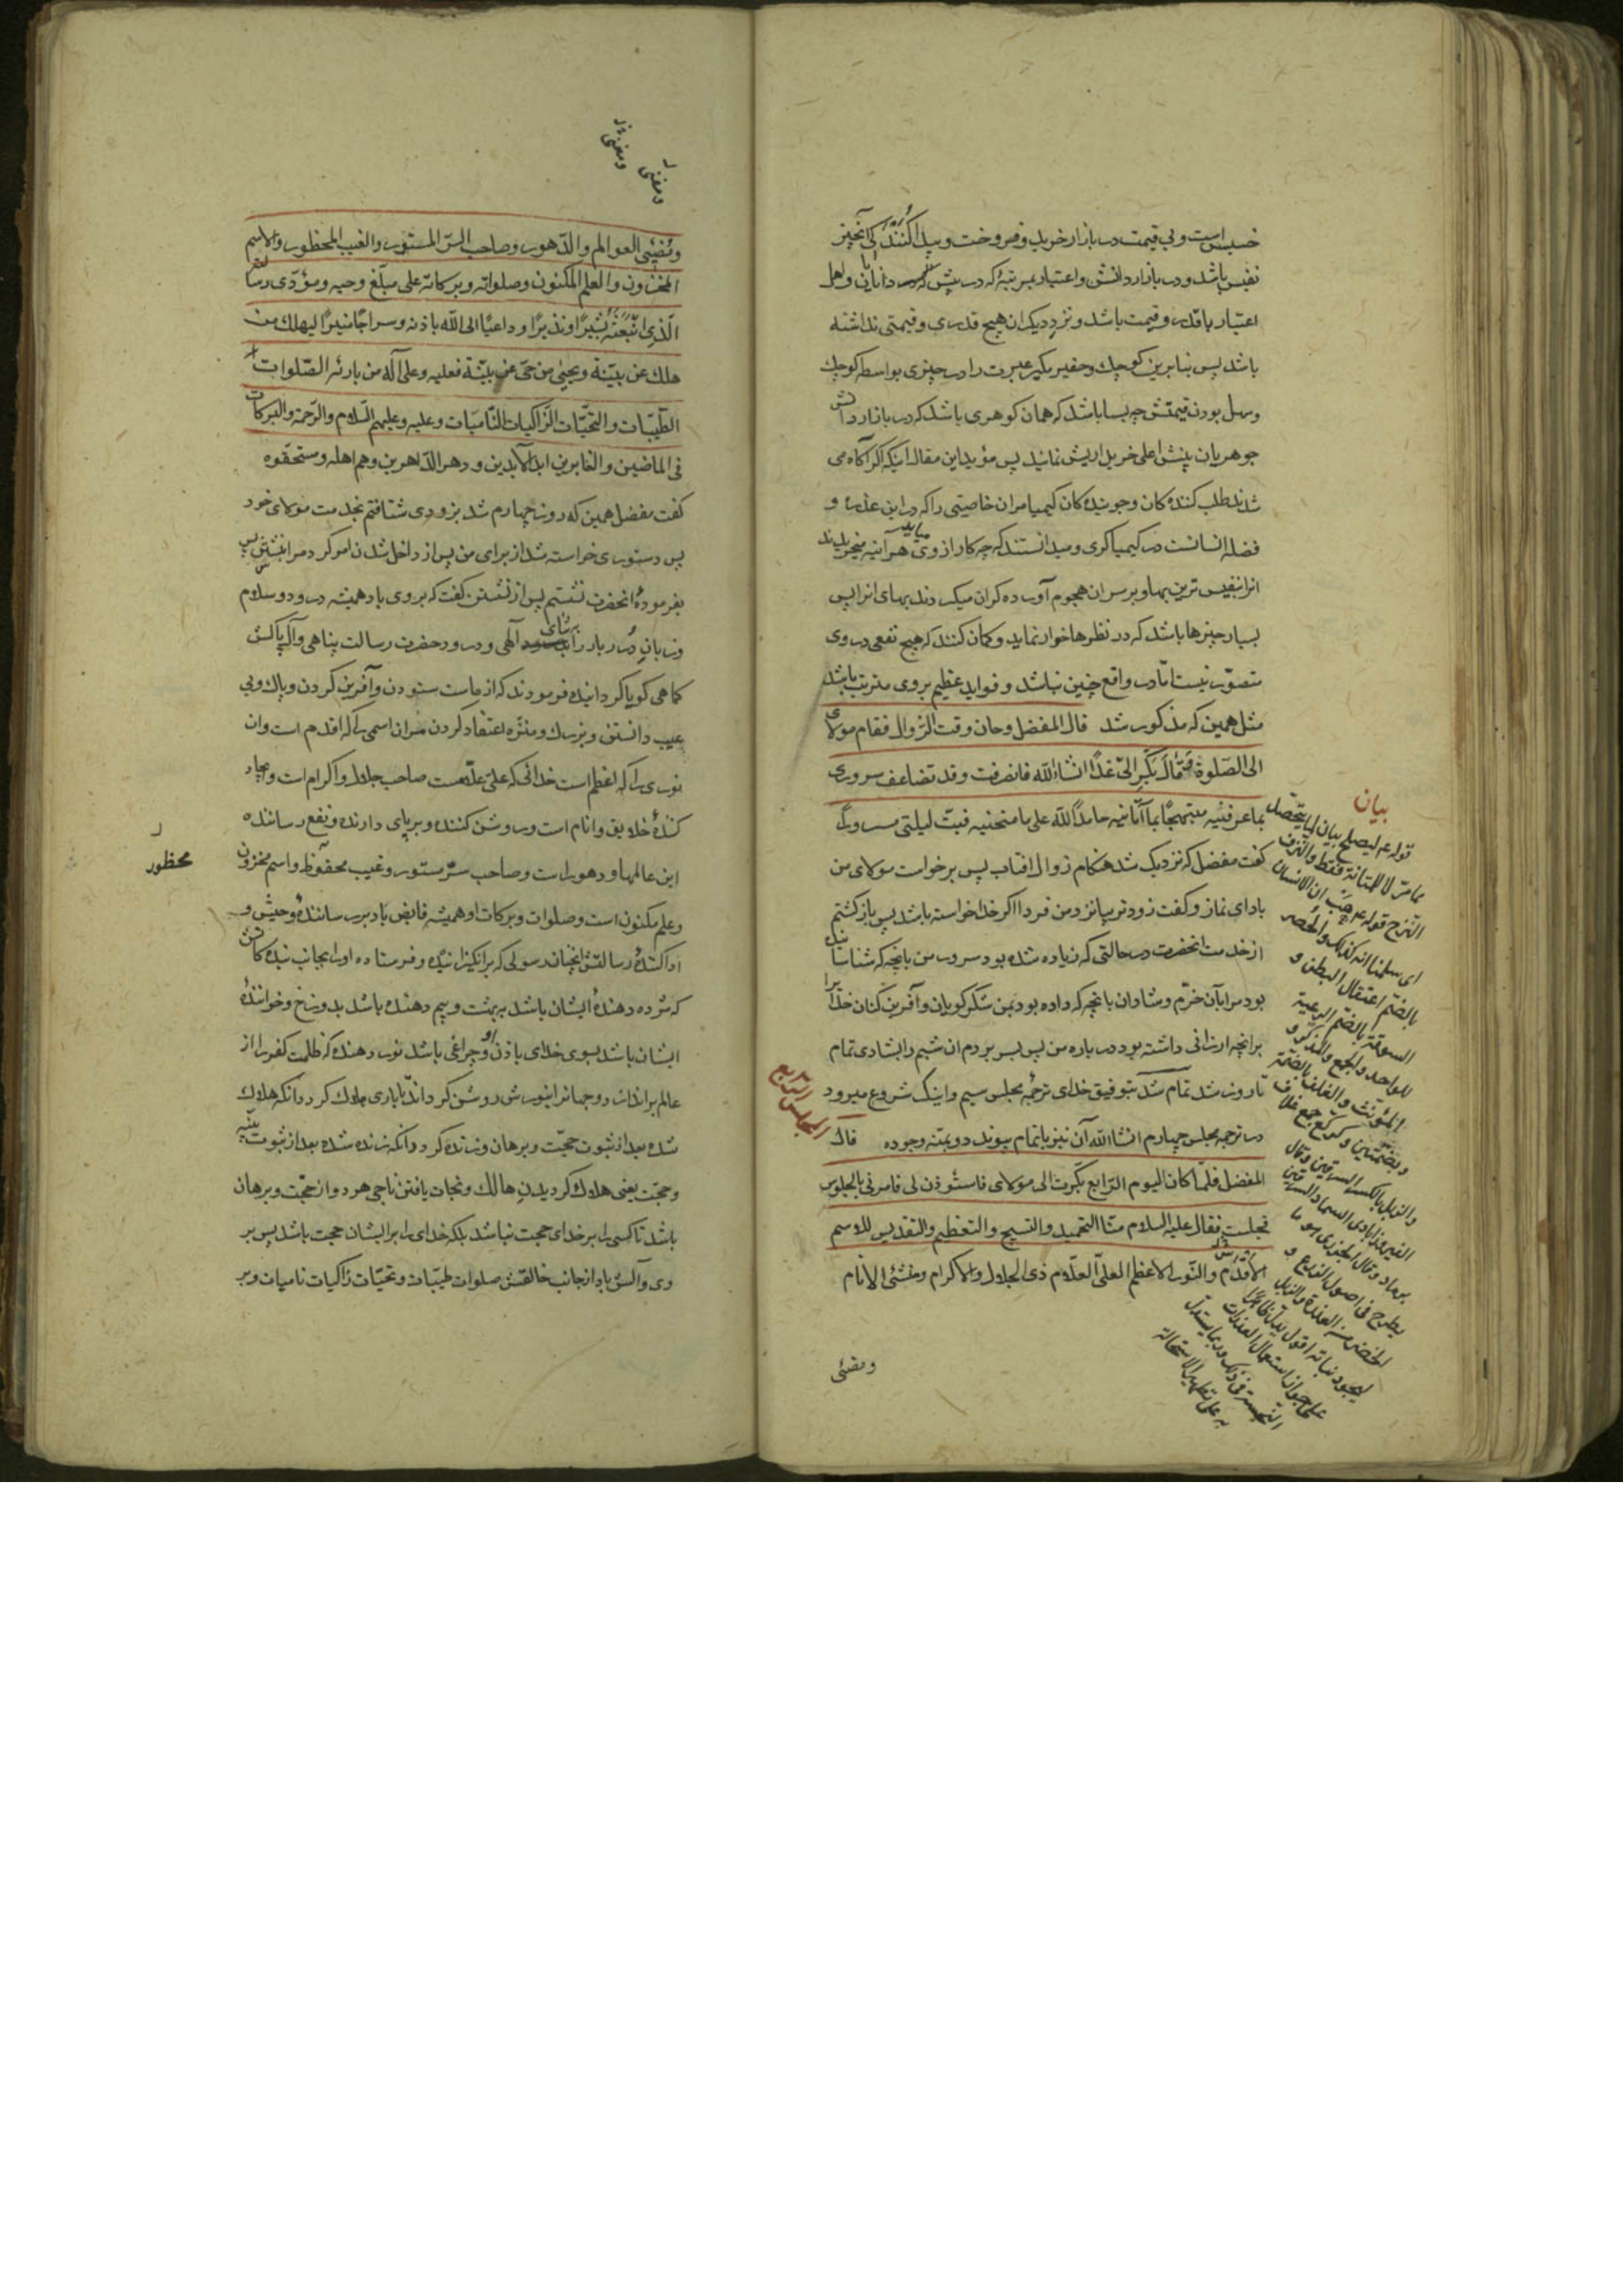 خسیس است و بی قیمت در بازار خرید و فروخت و پیدا کنند که آنچیز
نفیس باشد و در بازار دانش و اعتبار بمرتبهٔ که در پیش دانایان و اهل
اعتبار با قدر و قیمت باشد و نزد دیکران هیچ قدری و قیمتی نداشته
باشد پس بنابرین کوچك و حقیر مکیر عبرت را در چیزی بواسطه کوچك
و سهل بودن قیمتش چه بسا باشد که همان کوهری باشد که در بازار دانش
جوهریان پیش اعلی خریداریش نمایند پس مؤید این مقال اینکه اکر آکاه می
شدند طلب کننده کان و جوینده کان کیمیا مران خاصیتی را که در این عذره و
فضله انسانست در کیمیاکری و میدانستند که چه کار از وی می‌اید هر آینه میخریدند
انرا بنفیس ترین بها و بر سر ان هجوم آورده کران میکردند بهای انرا پس
بسیار چیزها باشد که در نظرها خوار نماید و کمان کنند که هیچ نفعی در وی
متصور نیست امّا در واقع چنین نباشد و فواید عظیم بر وی مترتب باشد
مثل همین که مذکور شد قال المفضل وحان وقت الزّوال فقام مولای
الی الصّلوة وَقَالَ بَکِّر الیّ غَدًا انشاءالله فانصرفت وقد تضاعف سروری
بما عرفنیه مبتهجًا بما آتانیه حامدًا لله علی ما منحنیه فبتّ لیلتی مسرورًا
کفت مفضل که نزدیک شد هنکام زوال افتاب پس برخواست مولای من
بادای نماز و کفت زودتر بیا نزد من فردا اکر خدا خواسته باشد پس بازکشتم
از خدمت انحضرت در حالتی که زیاده شده بود سرور من بانچه که شناسانیده
بود مرا بآن خرّم و شادان بانچه که داده بود بمن شکر کویان و آفرین کنان خدا را
برانچه ارزانی داشته بود در باره من پس بسر بردم ان شبم را بشادی تمام
تا روز شد تمام شد بتوفیق خدای ترجمهٔ مجلس سیم و اینک شروع میرود
در ترجمه مجلس چهارم انشاالله آن نیز باتمام پیوندد و بمنّه وجوده قال
المفضل فلمّا کان الیوم الرّابع بکّرت الی مولای فاستُوذن لی فامرنی بالجلوس
فجلست فقال علیه السلام منّا التحمید والتسبیح والتعظیم والتقدیس للاسم
الاقدم والنّور الاعظم العلیّ العلّام ذی الجلال والاکرام ومنشئی الانام
ومفنی
المجلس الرّابع
بیان
قوله ع لیصلح بیان لما یتحصّل
مما مرّ لا للمتانة فقط والنزف
النزح قوله ع هَبْ ان الانسان
ای سلّمنا انه کذلک والحُصر
بالضّم اعتقال البطن و
السوقة بالضّم الرعیة
للواحد والجمع والمذکر و
المؤنث والغلف بالضّمة
وبضمتین وکرکّع جمع غلاف
والزبل بالکسر السرقین وقال
الفیروزابادی السماد السرقین
برماد وقال الجزری هو ما
یطرح فی اصول الزرع و
الخضر من العذرة والزبل
لیجود نباته اقول یدلّ ظاهرًا
علی جواز استعمال العذرات
النجسة فی ذلک وربما یستدلّ
به علی تطهیر الاستحالة
ومفنی
ومفنی
ومُفنِی العوالم والدّهور وصاحب السّر المستور والغیب المحظور والاسم
المخزون والعلم المکنون وصلواته وبرکاته علی مبلّغ وحیه ومؤدّی رسالته
الّذی ابتعثه بَشیرًا ونذیرًا وداعیًا الی الله باذنه وسراجًا منیرًا لیهلك من
هلك عن بیّنة ویحیی من حیّ عن بیّنة فعلیه وعلی آله من بارئه الصّلوات
الطّیّبات والتحیّات الزّاکیات النّامیَات وعلیه وعلیهم السّلام والرّحمة والبرکات
فی الماضین والغابرین ابد الآبدین ودهر الدّاهرین وهم اهله ومستحقّوه
کفت مفضل همین که روز چهارم شد بزودی شتافتم بخدمت مولای خود
پس دستوری خواسته شد از برای من پس از داخل شدن امر کرد مرا بنشستن پس
بفرمودهٔ انحضرت نشستم پس از نشستن کفت که بروی باد همیشه درود و سلام
و زبان دُرر بار را به ثنای الهی و درود حضرت رسالت پناهی و آل پاکش
کماهی کویا کردانیده فرمودند که از ماست ستودن و آفرین کردن و پاك و بی
عیب دانستن و بزرك و منزّه اعتقاد کردن مران اسمی را که اقدم است و ان
نوری را که اعظم است خدائی که علیّ علّامست صاحب جلال و اکرام است و ایجاد
کنندهٔ خلایق و انام است و روشن کننده و بر پای دارنده و نفع رساننده
این عالمها و دهور است و صاحب سرّ مستور و غیب محفوظ و اسم مخزون
محظور
و علم مکنون است و صلوات و برکات او همیشه فایض باد بر رسانندهٔ وحیش و
ادا کنندهٔ رسالتش انچنان رسولی که برانکیزانیده و فرستاده او را بجانب بندکانش
که مژده دهندهٔ ایشان باشد ببهشت و بیم دهنده باشد بدوزخ و خوانندهٔ
ایشان باشد بسوی خدای باذن او و چراغی باشد نور دهنده که ظلمت کفر را از
عالم براندازد و جهانرا بنورش روشن کرداند تا باری هلاك کردد انکه هلاك
شده بعد از ثبوت حجّت و برهان و زنده کردد انکه زنده شده بعد از ثبوت بیّنه
و حجّت یعنی هلاك کردیدن هالك و نجات یافتن ناجی هر دو از حجّت و برهان
باشد تا کسی را بر خدای حجت نباشد بلکه خدای را بر ایشان حجت باشد پس بر
وی و آلش باد از جانب خالقش صلوات طیّبات و تحیّات زاکیات نامیات و بر